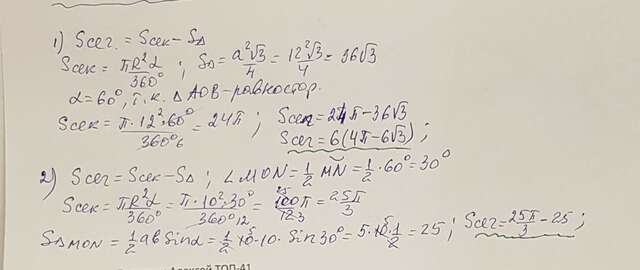 1) Sсег. = Sсек - S△
Sсек = πR²α/360° ; S△ = a²√3/4 = 12²√3/4 = 36√3
α = 60°, т.к. △AOB - равностор.
Sсек = π·12²·60°/360° 6 = 24π ; Sсег = 24π - 36√3
Sсег = 6(4π - 6√3) ;
2) Sсег = Sсек - S△ ; ∠MON = 1/2 MN = 1/2 · 60° = 30°
Sсек = πR²α/360° = π·10²·30°/360° 12 = 25 100π/12 3 = 25π/3
S△MON = 1/2 ab sinα = 1/2 · 10 5 · 10 · sin 30° = 5 · 10 5 · 1/2 = 25 ; Sсег = 25π/3 - 25 ;